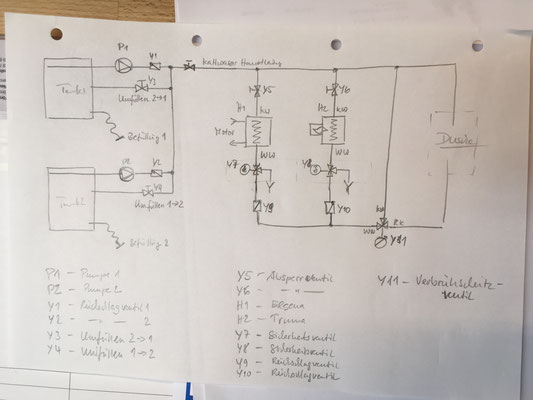 P1
Y1
Kaltwasser Hauptleitung
Tank 1
Y3
Umfüllen 2→1
Befüllung 1
Y5
Y6
H1
KW
H2
KW
Motor
WW
WW
P2
Y2
Y7
Y8
Tank 2
Y4
Umfüllen 1→2
Befüllung 2
Y9
Y10
Dusche
KW
WW
Y11
P1 – Pumpe 1
P2 – Pumpe 2
Y1 – Rückschlagventil 1
Y2 – –〃– 2
Y3 – Umfüllen 2→1
Y4 – Umfüllen 1→2
Y5 – Absperrventil
Y6 – –〃–
H1 – Elgena
H2 – Truma
Y7 – Sicherheitsventil
Y8 – Sicherheitsventil
Y9 – Rückschlagventil
Y10 – Rückschlagventil
Y11 – Verbrühschutz-
ventil